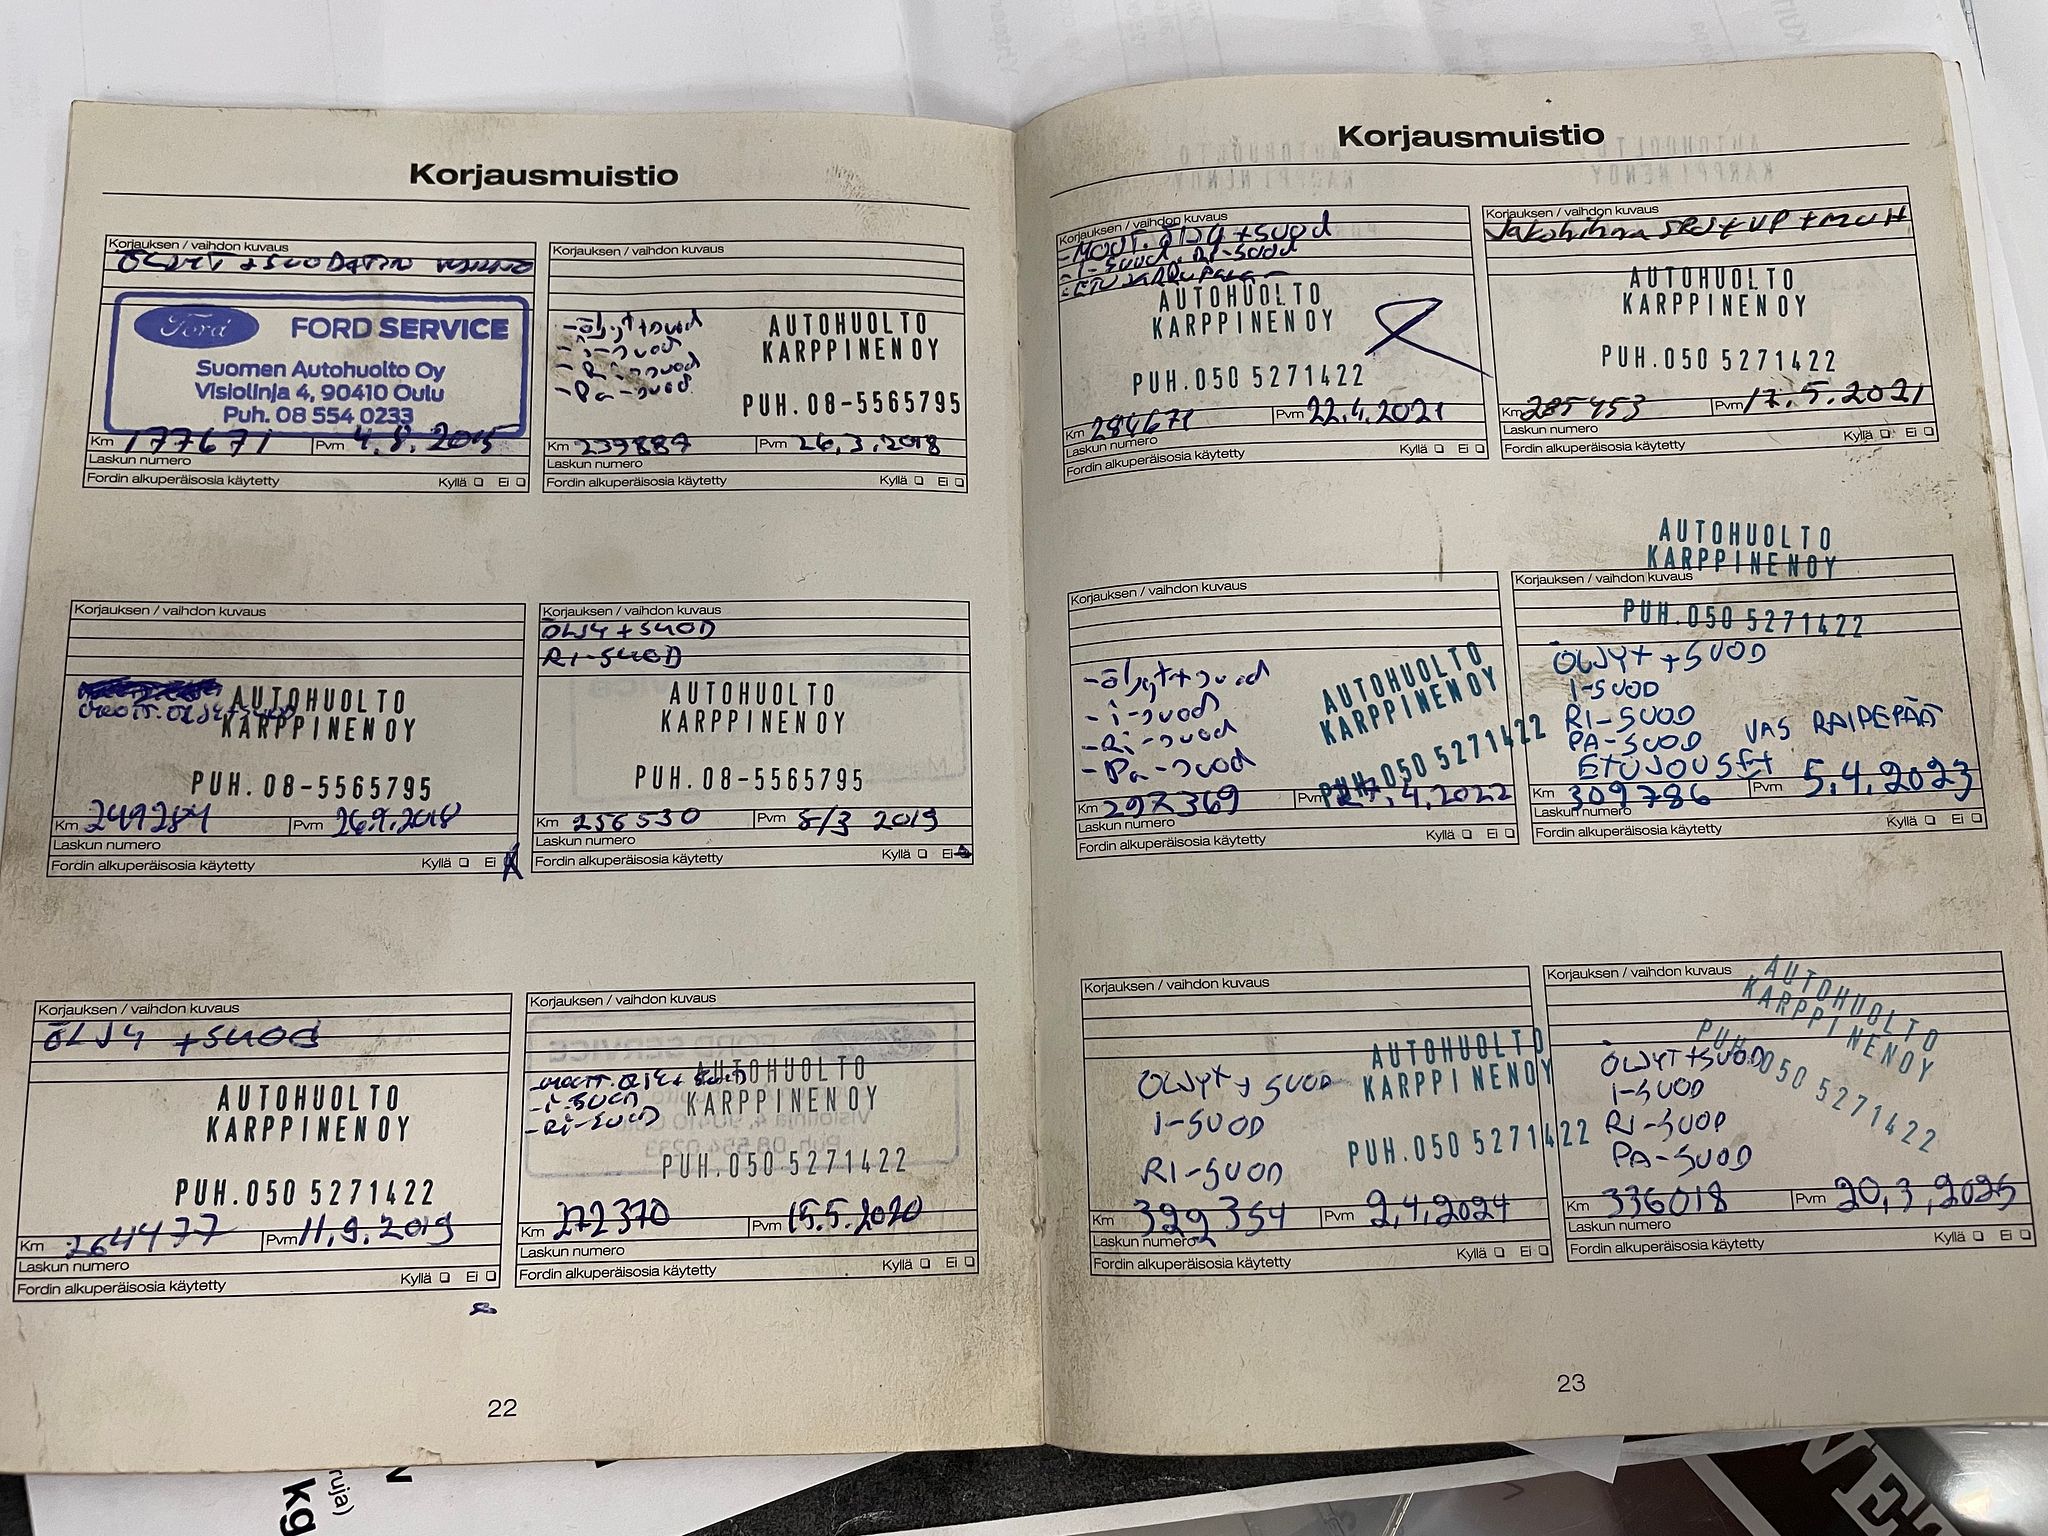 Korjausmuistio
Korjauksen / vaihdon kuvaus
ÖLJYT + SUODATIN
Ford FORD SERVICE
Suomen Autohuolto Oy
Visiolinja 4, 90410 Oulu
Puh. 08 554 0233
Km 177671 Pvm 4.8.2015
Laskun numero
Fordin alkuperäisosia käytetty Kyllä Ei
Korjauksen / vaihdon kuvaus
-öljyt+suod
-i-suod
-Ri-suod
-Pa-suod
AUTOHUOLTO
KARPPINEN OY
PUH. 08-5565795
Km 239887 Pvm 26.3.2018
Laskun numero
Fordin alkuperäisosia käytetty Kyllä Ei
Korjauksen / vaihdon kuvaus
AUTOHUOLTO
moott. ÖLJY+SUOD
KARPPINEN OY
PUH. 08-5565795
Km 249284 Pvm 26.9.2018
Laskun numero
Fordin alkuperäisosia käytetty Kyllä Ei
Korjauksen / vaihdon kuvaus
ÖLJY + SUOD
RI-SUOD
AUTOHUOLTO
KARPPINEN OY
PUH. 08-5565795
Km 256530 Pvm 8/3 2019
Laskun numero
Fordin alkuperäisosia käytetty Kyllä Ei
Korjauksen / vaihdon kuvaus
ÖLJY + SUOD
AUTOHUOLTO
KARPPINEN OY
PUH. 050 5271422
Km 264477 Pvm 11.9.2019
Laskun numero
Fordin alkuperäisosia käytetty Kyllä Ei
Korjauksen / vaihdon kuvaus
AUTOHUOLTO
-moott. ÖLJY+ SUOD
-i-SUOD
-Ri-SUOD
KARPPINEN OY
PUH. 050 5271422
Km 272370 Pvm 15.5.2020
Laskun numero
Fordin alkuperäisosia käytetty Kyllä Ei
22
Korjausmuistio
Korjauksen / vaihdon kuvaus
-MOOT. ÖLJY +suod
-I-suod, RI-suod
-ETU JARRUPALA
AUTOHUOLTO
KARPPINEN OY
PUH. 050 5271422
Km 284671 Pvm 22.4.2021
Laskun numero
Fordin alkuperäisosia käytetty Kyllä Ei
Korjauksen / vaihdon kuvaus
Jakohihna
AUTOHUOLTO
KARPPINEN OY
PUH. 050 5271422
Km 285453 Pvm 17.5.2021
Laskun numero
Fordin alkuperäisosia käytetty Kyllä Ei
Korjauksen / vaihdon kuvaus
-öljyt+suod
-i-suod
-Ri-suod
-Pa-suod
AUTOHUOLTO
KARPPINEN OY
PUH. 050 5271422
Km 297369 Pvm 27.4.2022
Laskun numero
Fordin alkuperäisosia käytetty Kyllä Ei
AUTOHUOLTO
KARPPINEN OY
Korjauksen / vaihdon kuvaus
PUH. 050 5271422
ÖLJYT + SUOD
I-SUOD
RI-SUOD
PA-SUOD VAS RAIDEPÄÄ
ETUJOUSET
Km 309786 Pvm 5.4.2023
Laskun numero
Fordin alkuperäisosia käytetty Kyllä Ei
Korjauksen / vaihdon kuvaus
ÖLJYT + SUOD
I-SUOD
RI-SUOD
AUTOHUOLTO
KARPPINEN OY
PUH. 050 5271422
Km 329354 Pvm 2.4.2024
Laskun numero
Fordin alkuperäisosia käytetty Kyllä Ei
Korjauksen / vaihdon kuvaus
AUTOHUOLTO
KARPPINEN OY
PUH. 050 5271422
ÖLJYT +SUOD
I-SUOD
RI-SUOD
PA-SUOD
Km 336018 Pvm 20.3.2025
Laskun numero
Fordin alkuperäisosia käytetty Kyllä Ei
23
kg